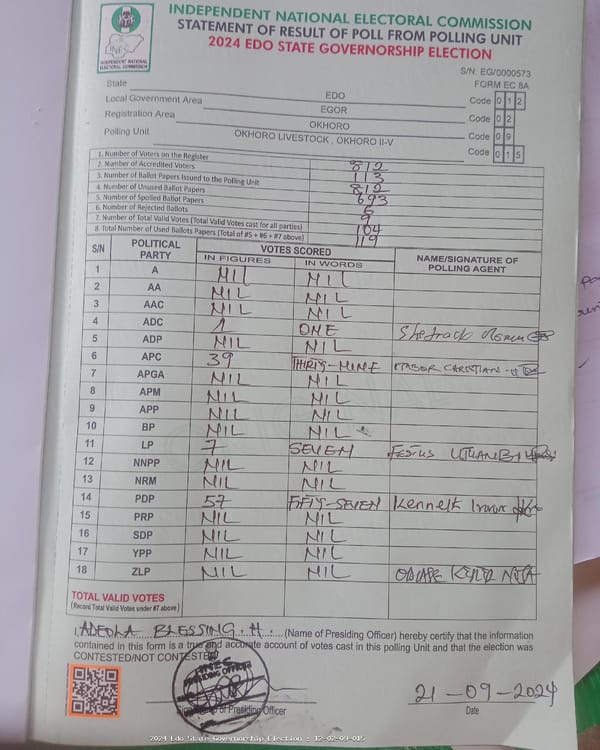 INDEPENDENT NATIONAL ELECTORAL COMMISSION
STATEMENT OF RESULT OF POLL FROM POLLING UNIT
2024 EDO STATE GOVERNORSHIP ELECTION
INEC
INDEPENDENT NATIONAL
ELECTORAL COMMISSION
S/N: EG/0000573
FORM EC 8A
State EDO Code 0 1 2
Local Government Area EGOR Code 0 2
Registration Area OKHORO Code 0 9
Polling Unit OKHORO LIVESTOCK , OKHORO II-V Code 0 1 5
1. Number of Voters on the Register 812
2. Number of Accredited Voters 113
3. Number of Ballot Papers Issued to the Polling Unit 812
4. Number of Unused Ballot Papers 693
5. Number of Spoiled Ballot Papers 6
6. Number of Rejected Ballots 9
7. Number of Total Valid Votes (Total Valid Votes cast for all parties) 104
8. Total Number of Used Ballots Papers (Total of #5 + #6 + #7 above) 119
S/N POLITICAL PARTY VOTES SCORED NAME/SIGNATURE OF POLLING AGENT
IN FIGURES IN WORDS
1 A NIL NIL
2 AA NIL NIL
3 AAC NIL NIL
4 ADC 1 ONE
5 ADP NIL NIL
6 APC 39 THIRTY-NINE CHRISTIAN
7 APGA NIL NIL
8 APM NIL NIL
9 APP NIL NIL
10 BP NIL NIL
11 LP 7 SEVEN FESTUS
12 NNPP NIL NIL
13 NRM NIL NIL
14 PDP 57 FIFTY-SEVEN Kenneth
15 PRP NIL NIL
16 SDP NIL NIL
17 YPP NIL NIL
18 ZLP NIL NIL
TOTAL VALID VOTES
(Record Total Valid Votes under #7 above)
I, ADEOLA BLESSING . H. (Name of Presiding Officer) hereby certify that the information
contained in this form is a true and accurate account of votes cast in this polling Unit and that the election was
CONTESTED/NOT CONTESTED
INEC
PRESIDING OFFICER
Signature of Presiding Officer
21-09-2024
Date
2024 Edo State Governorship Election - 12-02-09-015